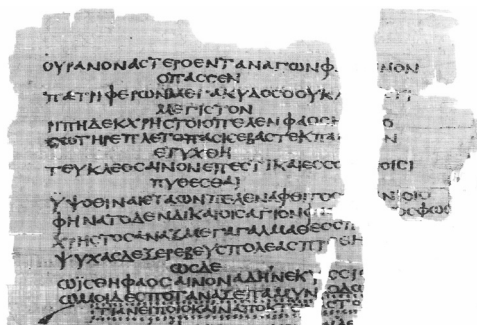 ΟΥΡΑΝΟΝΑϹΤΕΡΟΕΝΤΑΝΑΓΩΝΦ ΕΝΟΝ
ΟΠΑϹϹΕΝ
ΠΑΤΡΙΦΕΡΩΝΜΕΓΑΚΥΔΟϹΟΟΥΚ
ΜΕΓΙϹΤΟΝ
ΡΙΠΗΔΕΚΧΡΗϹΤΟΙΟΠΕΛΕΝΦΑΟϹ
ϹΩΤΗΡΕΠΛΕΤΟΠΑϹΙϹΕΒΑϹΤΕΚΠΑ Ν
ΕΤΥΧΘΗ
ΤΕΥΚΛΕΟϹΑΙΝΟΝΕΠΕϹΤΙΚΑΙΕϹϹΟ ΟΙϹΙ
ΠΥΘΕϹΘΑΙ
ΥΨΟΘΙΝΑΙΕΤΑΩΝΠΕΛΕΝΑΦΘΙΤΟϹ ΟΙΟ
ΦΗΝΑΤΟΔΕΝΔΙΚΑΙΟΙϹΑΓΙΟΝ ΟϹΦΩϹ
ΧΡΗϹΤΟϹΑΝΑΞΜΕΓΑΓΑΛΜΑΘΕϹϹΠ
ΨΥΧΑϹΔΕΞΕΡΕΒΕΥϹΠΟΛΕΑϹΠ
ΩϹΔΕ
ΩΙϹΘΗΦΑΟϹΑΙΝΟΝΑΔΗΝΕΚ
ΩΜΟΙΔΕϹΠΟΤΑΝΑΞΕΠΑΜΥΝ